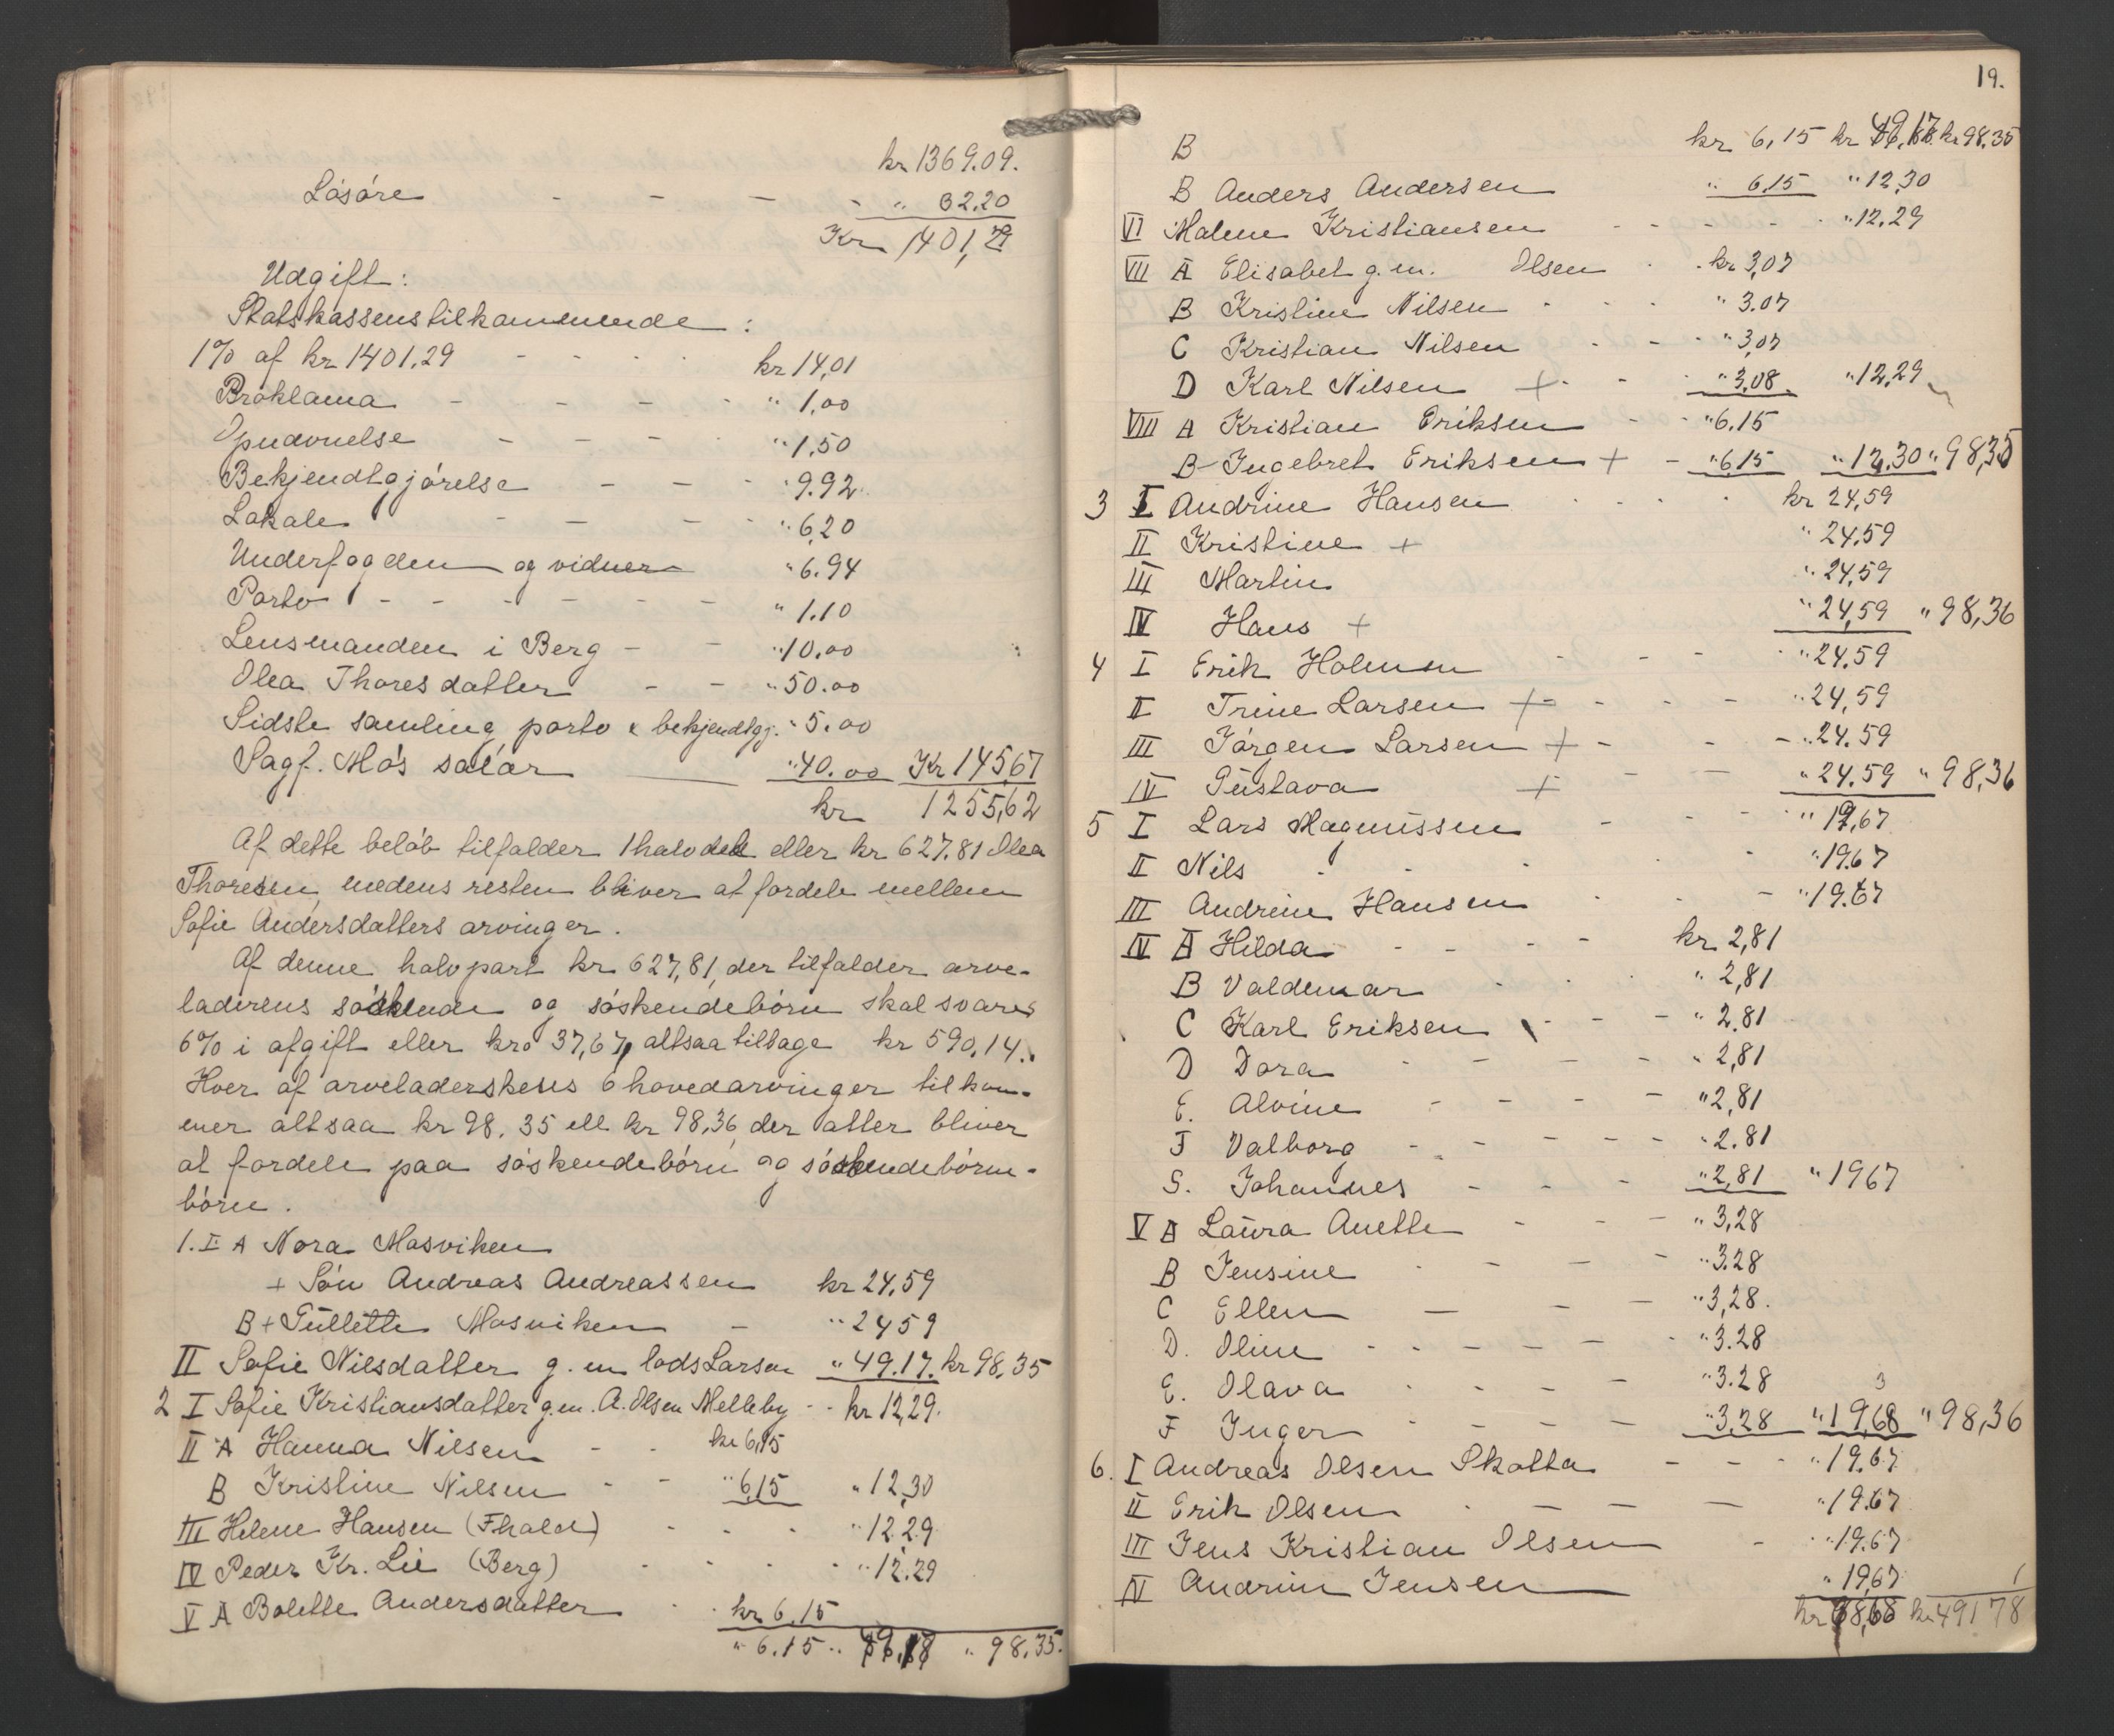 kr 1369.09.
Lösöre - - - - " 32.20
Kr 1401,29
Udgift:
Statskassens tilkommende:
1% af kr 1401,29 - - - - kr 14,01
Proklama - - - - - " 1,00
Opnævnelse - - - - " 1,50
Bekjendtgjörelse - - - " 9.92
Lokale - - - - " 6,20
Underfogden og vidner " 6.94
Porto - - - - - - " 1.10
Lensmanden i Berg - - " 10.00
Olea Thoresdatter - - " 50.00
Sidste samling, porto & bekjendtgj. " 5.00
Sagf. Mös salær " 40.00 Kr 145,67
kr 1255,62
Af dette belöb tilfalder 1 halvdel eller kr 627.81 Olea
Thoresen, medens resten bliver at fordele mellem
Sofie Andersdatters arvinger.
Af denne halvpart kr 627,81, der tilfalder arve-
laderens söskende og söskendebörn skal svares
6% i afgift eller kr 37,67, altsaa tilbage kr 590,14.
Hver af arveladerskens 6 hovedarvinger tilkom-
mer altsaa kr 98.35 ell kr 98,36, der atter bliver
at fordele paa söskendebörn og söskendebörns-
börn.
1. I A Nora Mosviken
+ Sön Andreas Andreassen kr 24,59
B + Gullette Mosviken - " 24 59
II Sofie Nilsdatter g. m lods Larsen " 49.17. kr 98.35
2 I Sofie Kristiansdatter g.m. A. Olsen Melleby - - kr 12,29.
II A Hanna Nilsen - - kr 6,15
B Kristine Nilsen - - " 6,15 " 12,30
III Helene Hansen (Fhald) - - - " 12.29
IV Peder Kr. Lie (Berg) - - - - " 12.29
V A Bolette Andersdatter - - kr 6.15
" 6.15 " 49,17 " 98.35.
19.
B kr 6,15 kr 49,17 kr 98.35
B Anders Andersen " 6.15 " 12,30
VI Malene Kristiansen - - - - " 12.29
VII A Elisabet g.m. Olsen - - kr 3,07
B Kristine Nilsen - - - " 3.07
C Kristian Nilsen - - - " 3,07
D Karl Nilsen + - - " 3,08. " 12,29
VIII A Kristian Eriksen - - " 6.15
B Ingebret Eriksen + - " 6.15 " 12.30 " 98,35
3 I Andrine Hansen - - - - kr 24,59
II Kristine + " 24.59
III Martin " 24,59
IV Hans + " 24,59 " 98,36
4 I Erik Holmen - - - - " 24.59
II Trine Larsen + - - - - " 24,59
III Jörgen Larsen + - - - " 24.59
IV Gustava + - - " 24.59 " 98,36
5 I Lars Magnussen - - - " 19,67
II Nils - - - - " 19.67
III Andrine Hansen - - - " 19.67
IV A Hilda - - - - kr 2,81
B Valdemar - - - " 2,81
C Karl Eriksen - - - " 2.81
D Dora - - - - " 2,81
E. Alvine - - - - " 2,81
F Valborg - - - - - " 2.81
G. Johannes - - - " 2,81 " 19 67
V A Laura Anette - - - " 3,28
B Jensine - - - - " 3.28
C Ellen - - - " 3,28.
D. Oline - - - - - " 3.28
E. Olava - - - - " 3.28
F Inger - - - - " 3,28 " 19,68 " 98,36
6. I Andreas Olsen Skotta - - - " 19.67
II Erik Olsen - - - - " 19.67
III Jens Kristian Olsen - - " 19.67
IV Andrine Jensen " 19,67
kr 98,68 kr 491 78